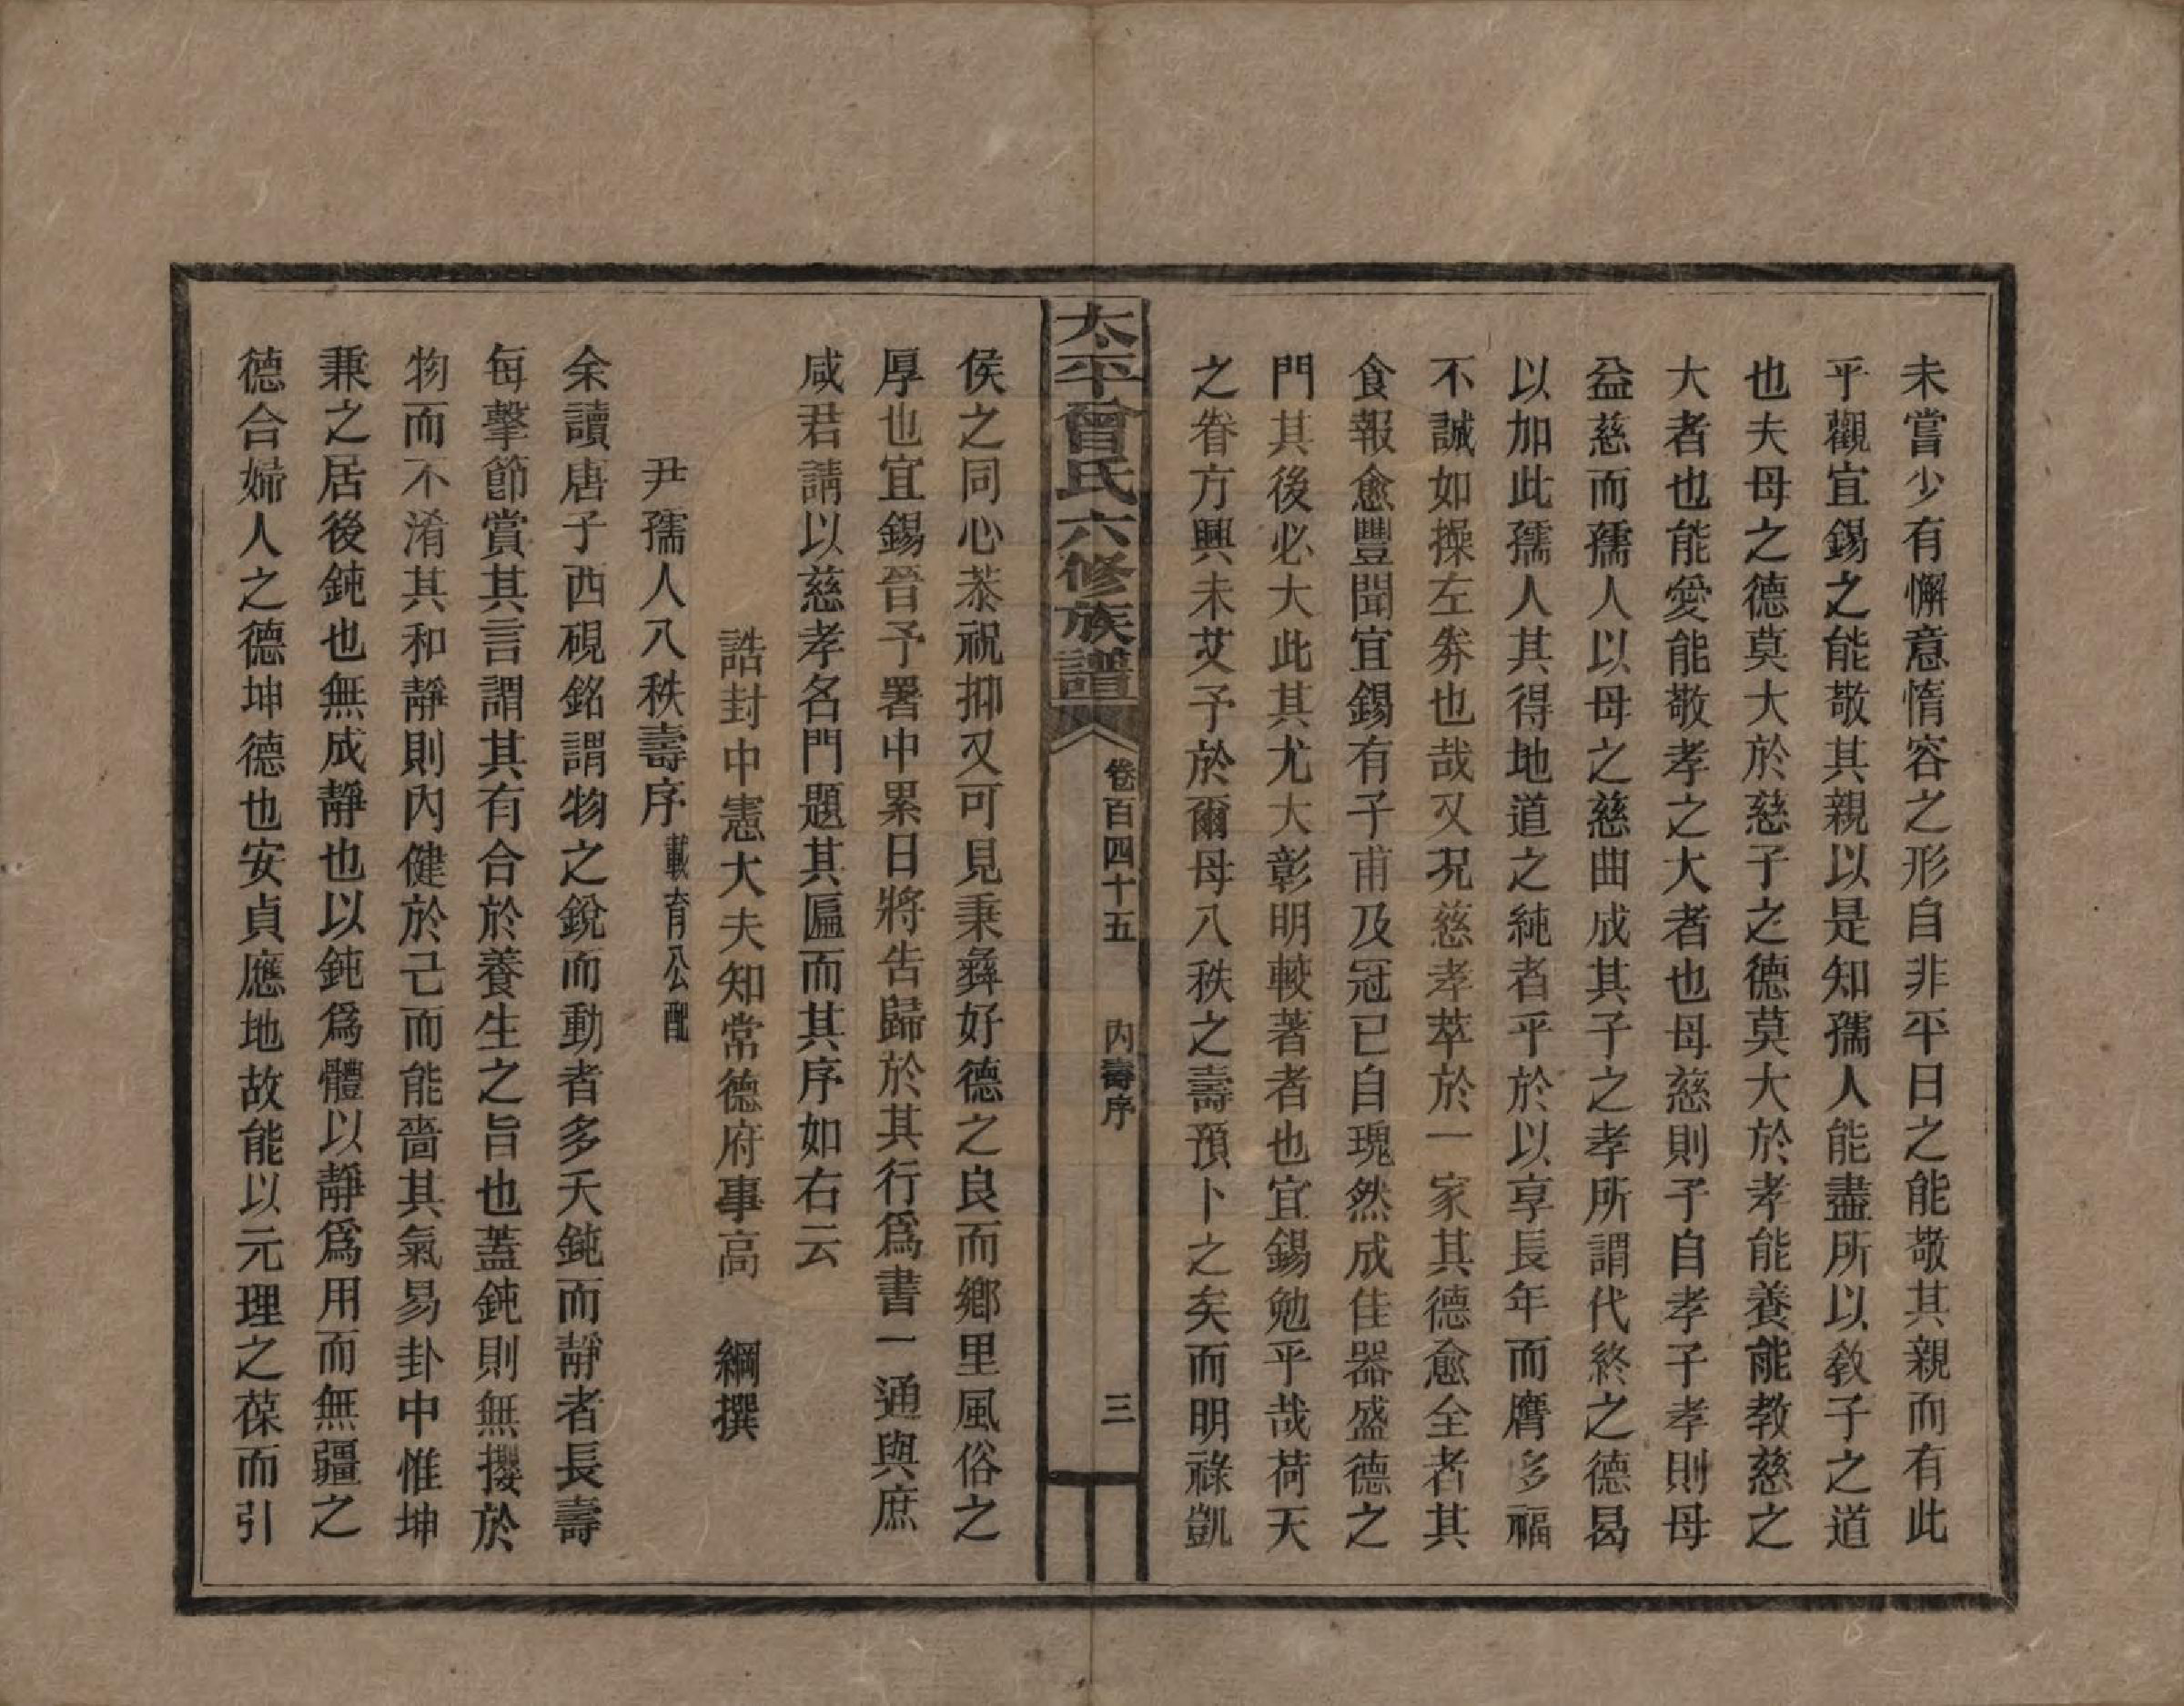 未嘗少有懈意惰容之形自非平日之能敬其親而有此
乎觀宜錫之能敬其親以是知孺人能盡所以敎子之道
也夫母之德莫大於慈子之德莫大於孝能養能教慈之
大者也能愛能敬孝之大者也母慈則子自孝子孝則母
益慈而孺人以母之慈曲成其子之孝所謂代終之德曷
以加此孺人其得地道之純者乎於以享長年而膺多福
不誠如操左券也哉又况慈孝萃於一家其德愈全者其
食報愈豐聞宜錫有子甫及冠已自瑰然成佳器盛德之
門其後必大此其尤大彰明較著者也宜錫勉乎哉荷天
之眷方興未艾予於爾母八秩之壽預卜之矣而明祿凱
太平曾氏六修族譜
卷百四十五
內壽序
三
侯之同心恭祝抑又可見秉彝好德之良而鄉里風俗之
厚也宜錫晉予署中累日將告歸於其行爲書一通與庶
咸君請以慈孝名門題其匾而其序如右云
誥封中憲大夫知常德府事高 綱撰
尹孺人八秩壽序載育公配
余讀唐子西硯銘謂物之銳而動者多夭鈍而靜者長壽
每擊節賞其言謂其有合於養生之旨也蓋鈍則無攖於
物而不淆其和靜則內健於己而能嗇其氣易卦中惟坤
兼之居後鈍也無成靜也以鈍爲體以靜爲用而無疆之
德合婦人之德坤德也安貞應地故能以元理之葆而引